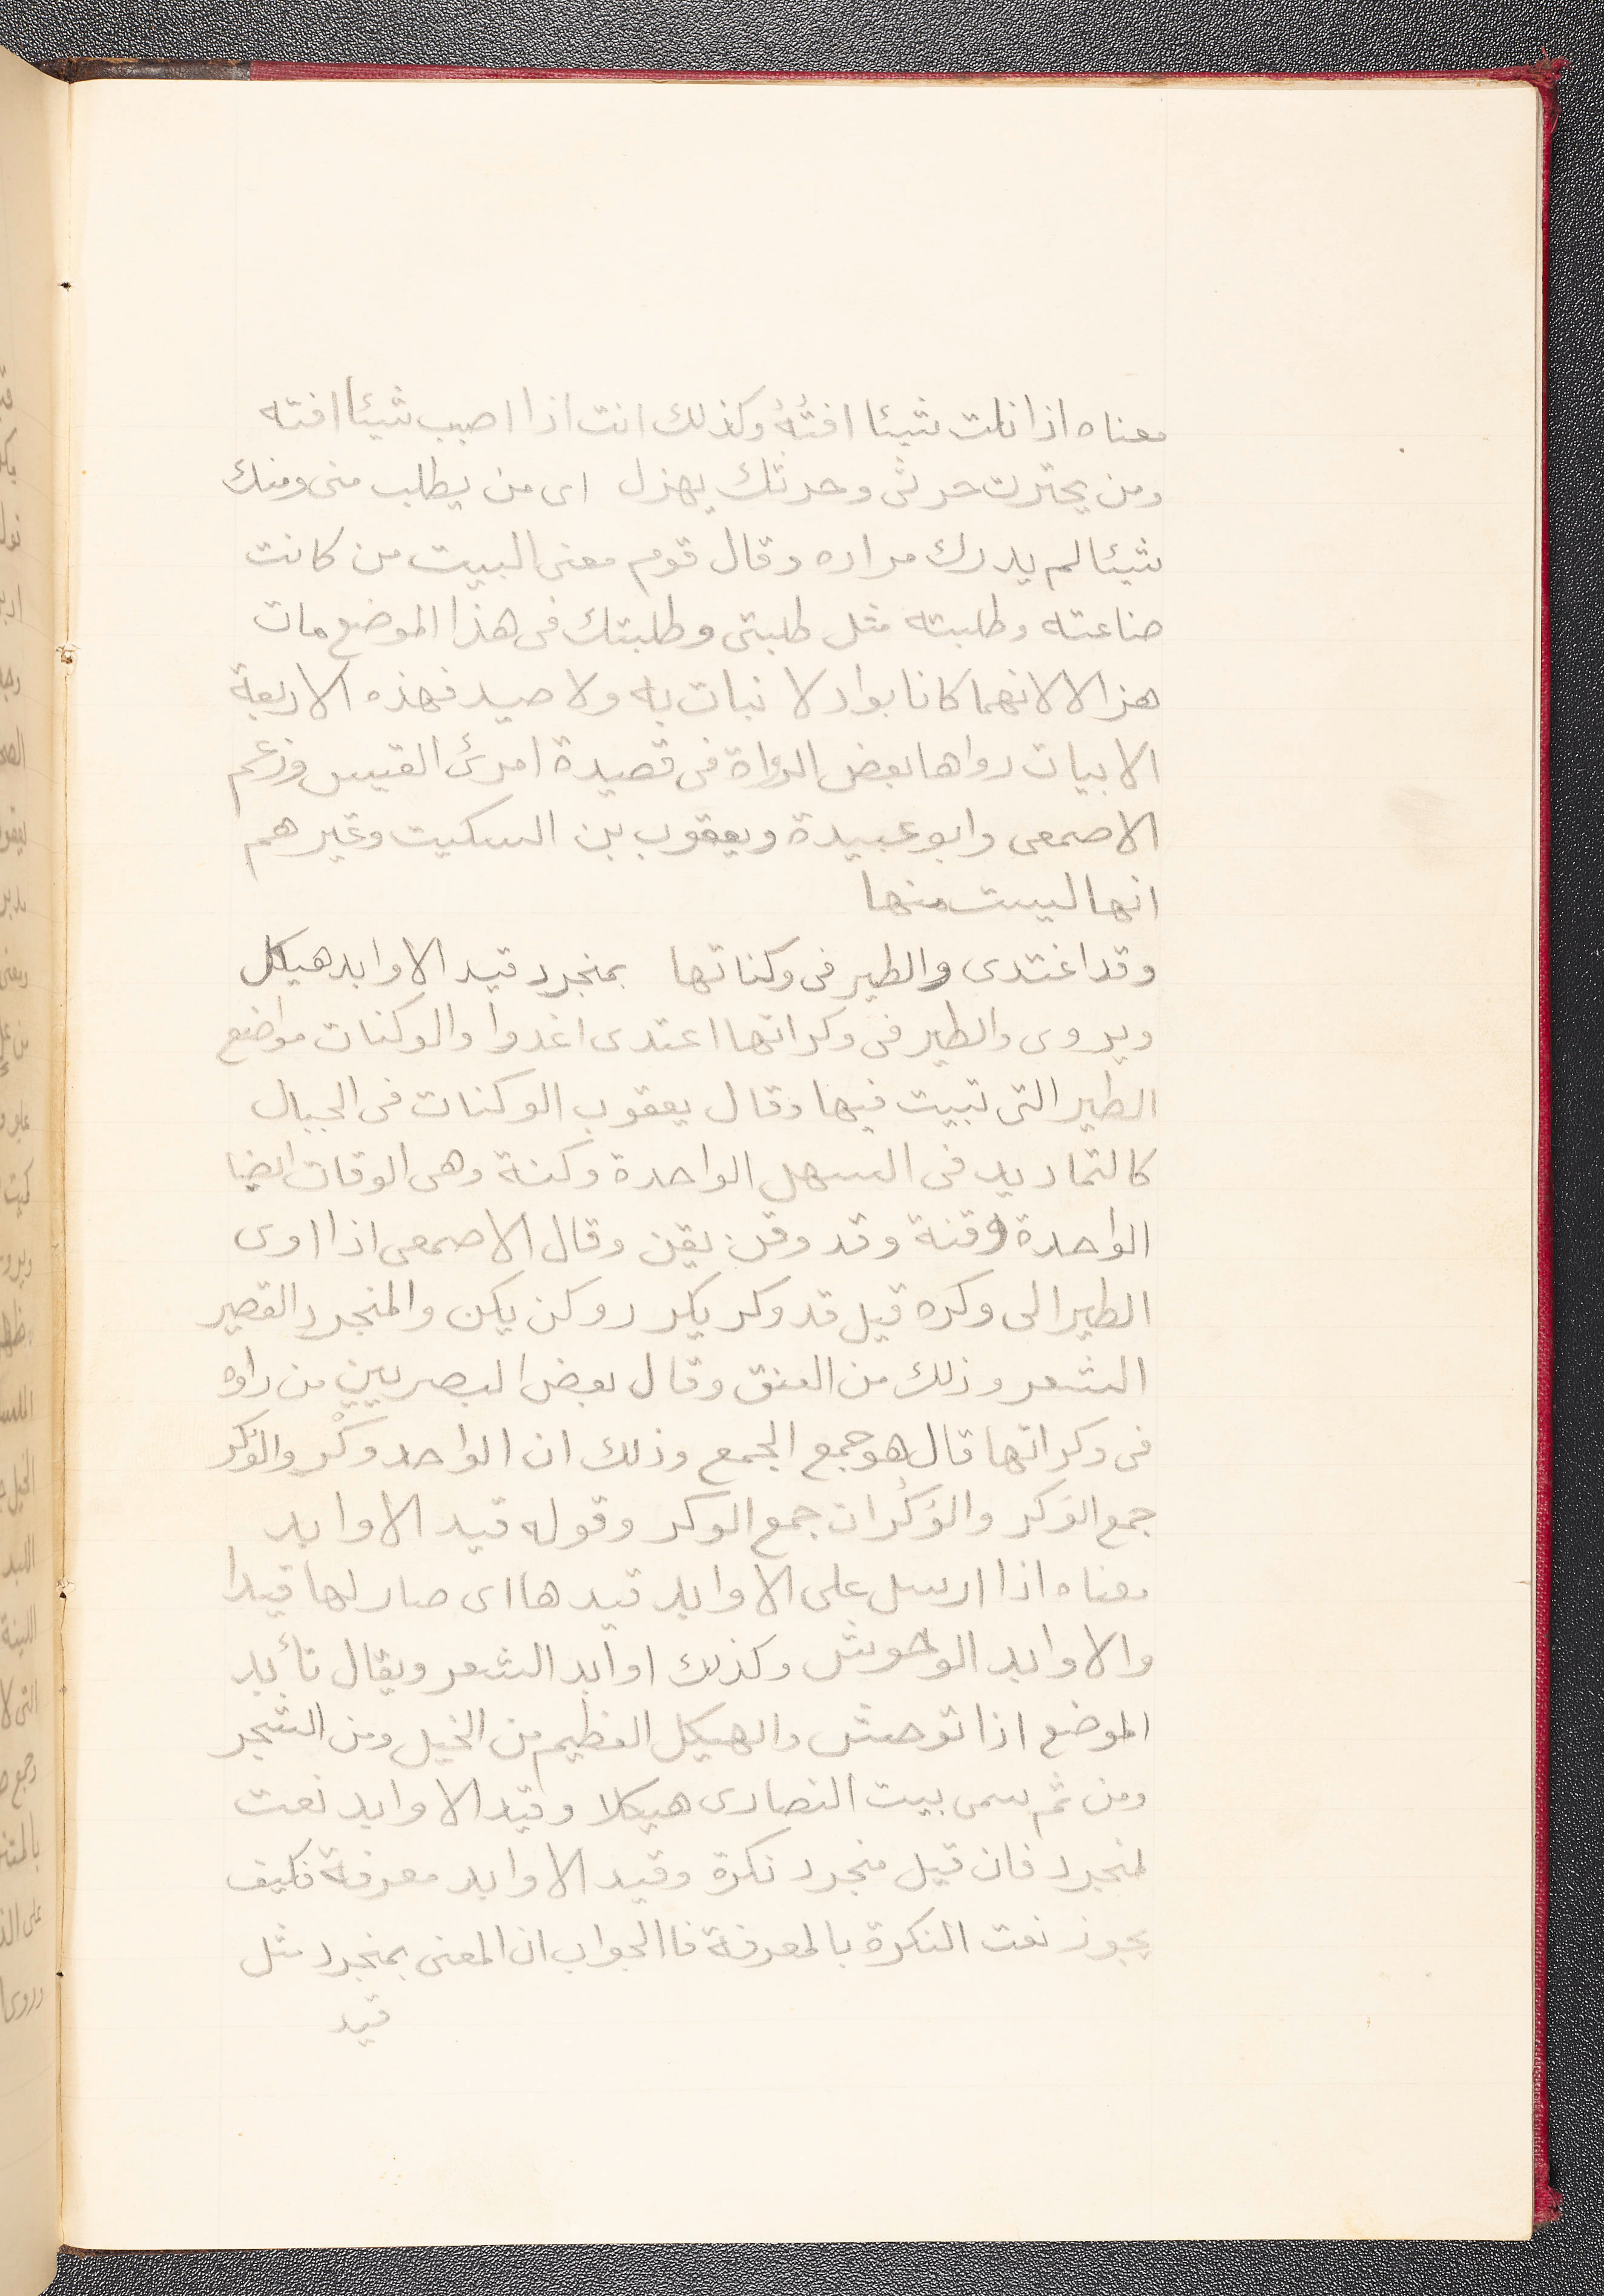 معناه اذا نلت شيئا افتُّهُ وكذلك انت اذا اصبب شيئا افته
ومن يحترث حرثى وحرثك يهزل اى من يطلب منى ومنك
شيئا لم يدرك مراده وقال قوم معنى البيت من كانت
صناعته وطلبته مثل طلبتى وطلبتك فى هذا الموضع مات
هزالا لانهما كانا بواد لا نبات به ولا صيد فهذه الاربعة
الابيات رواها بعض الرواة فى قصيدة امرئ القيس وزعم
الاصمعى وابو عبيدة ويعقوب بن السكيت وغيرهم
انها ليست منها
وقد اغتدى والطير فى وكناتها بمنجرد قيد الاوابد هيكل
ويروى والطير فى وكراتها اغتدى اغدوا والوكنات مواضع
الطير التى تبيت فيها وقال يعقوب الوكنات فى الجبال
كالتماريد فى السهل الواحدة وكنة وهى الوقنات ايضا
الواحدة وقنة وقد وقن يقن وقال الاصمعى اذا اوى
الطير الى وكره قيل قد وكر يكر ووكن يكن والمنجرد القصير
الشعر وذلك من العتق وقال بعض البصريين من راوه
فى وكراتها قال هو جمع الجمع وذلك ان الواحد وكْر والوُكُر
جمع الوَكر والوُكُرات جمع الوكر وقوله قيد الاوابد
معناه اذا ارسل على الاوابد قيدها اى صار لها قيدا
والاوابد الوحوش وكذلك اوابد الشعر ويقال تأبد
الموضع اذا توحش والهيكل العظيم من الخيل ومن الشجر
ومن ثم سمى بيت النصارى هيكلا وقيد الاوابد نعت
لمنجرد فان قيل منجرد نكرة وقيد الاوابد معرفة فكيف
يجوز نعت النكرة بالمعرفة فاالجواب ان المعنى بمنجرد مثل
قيد